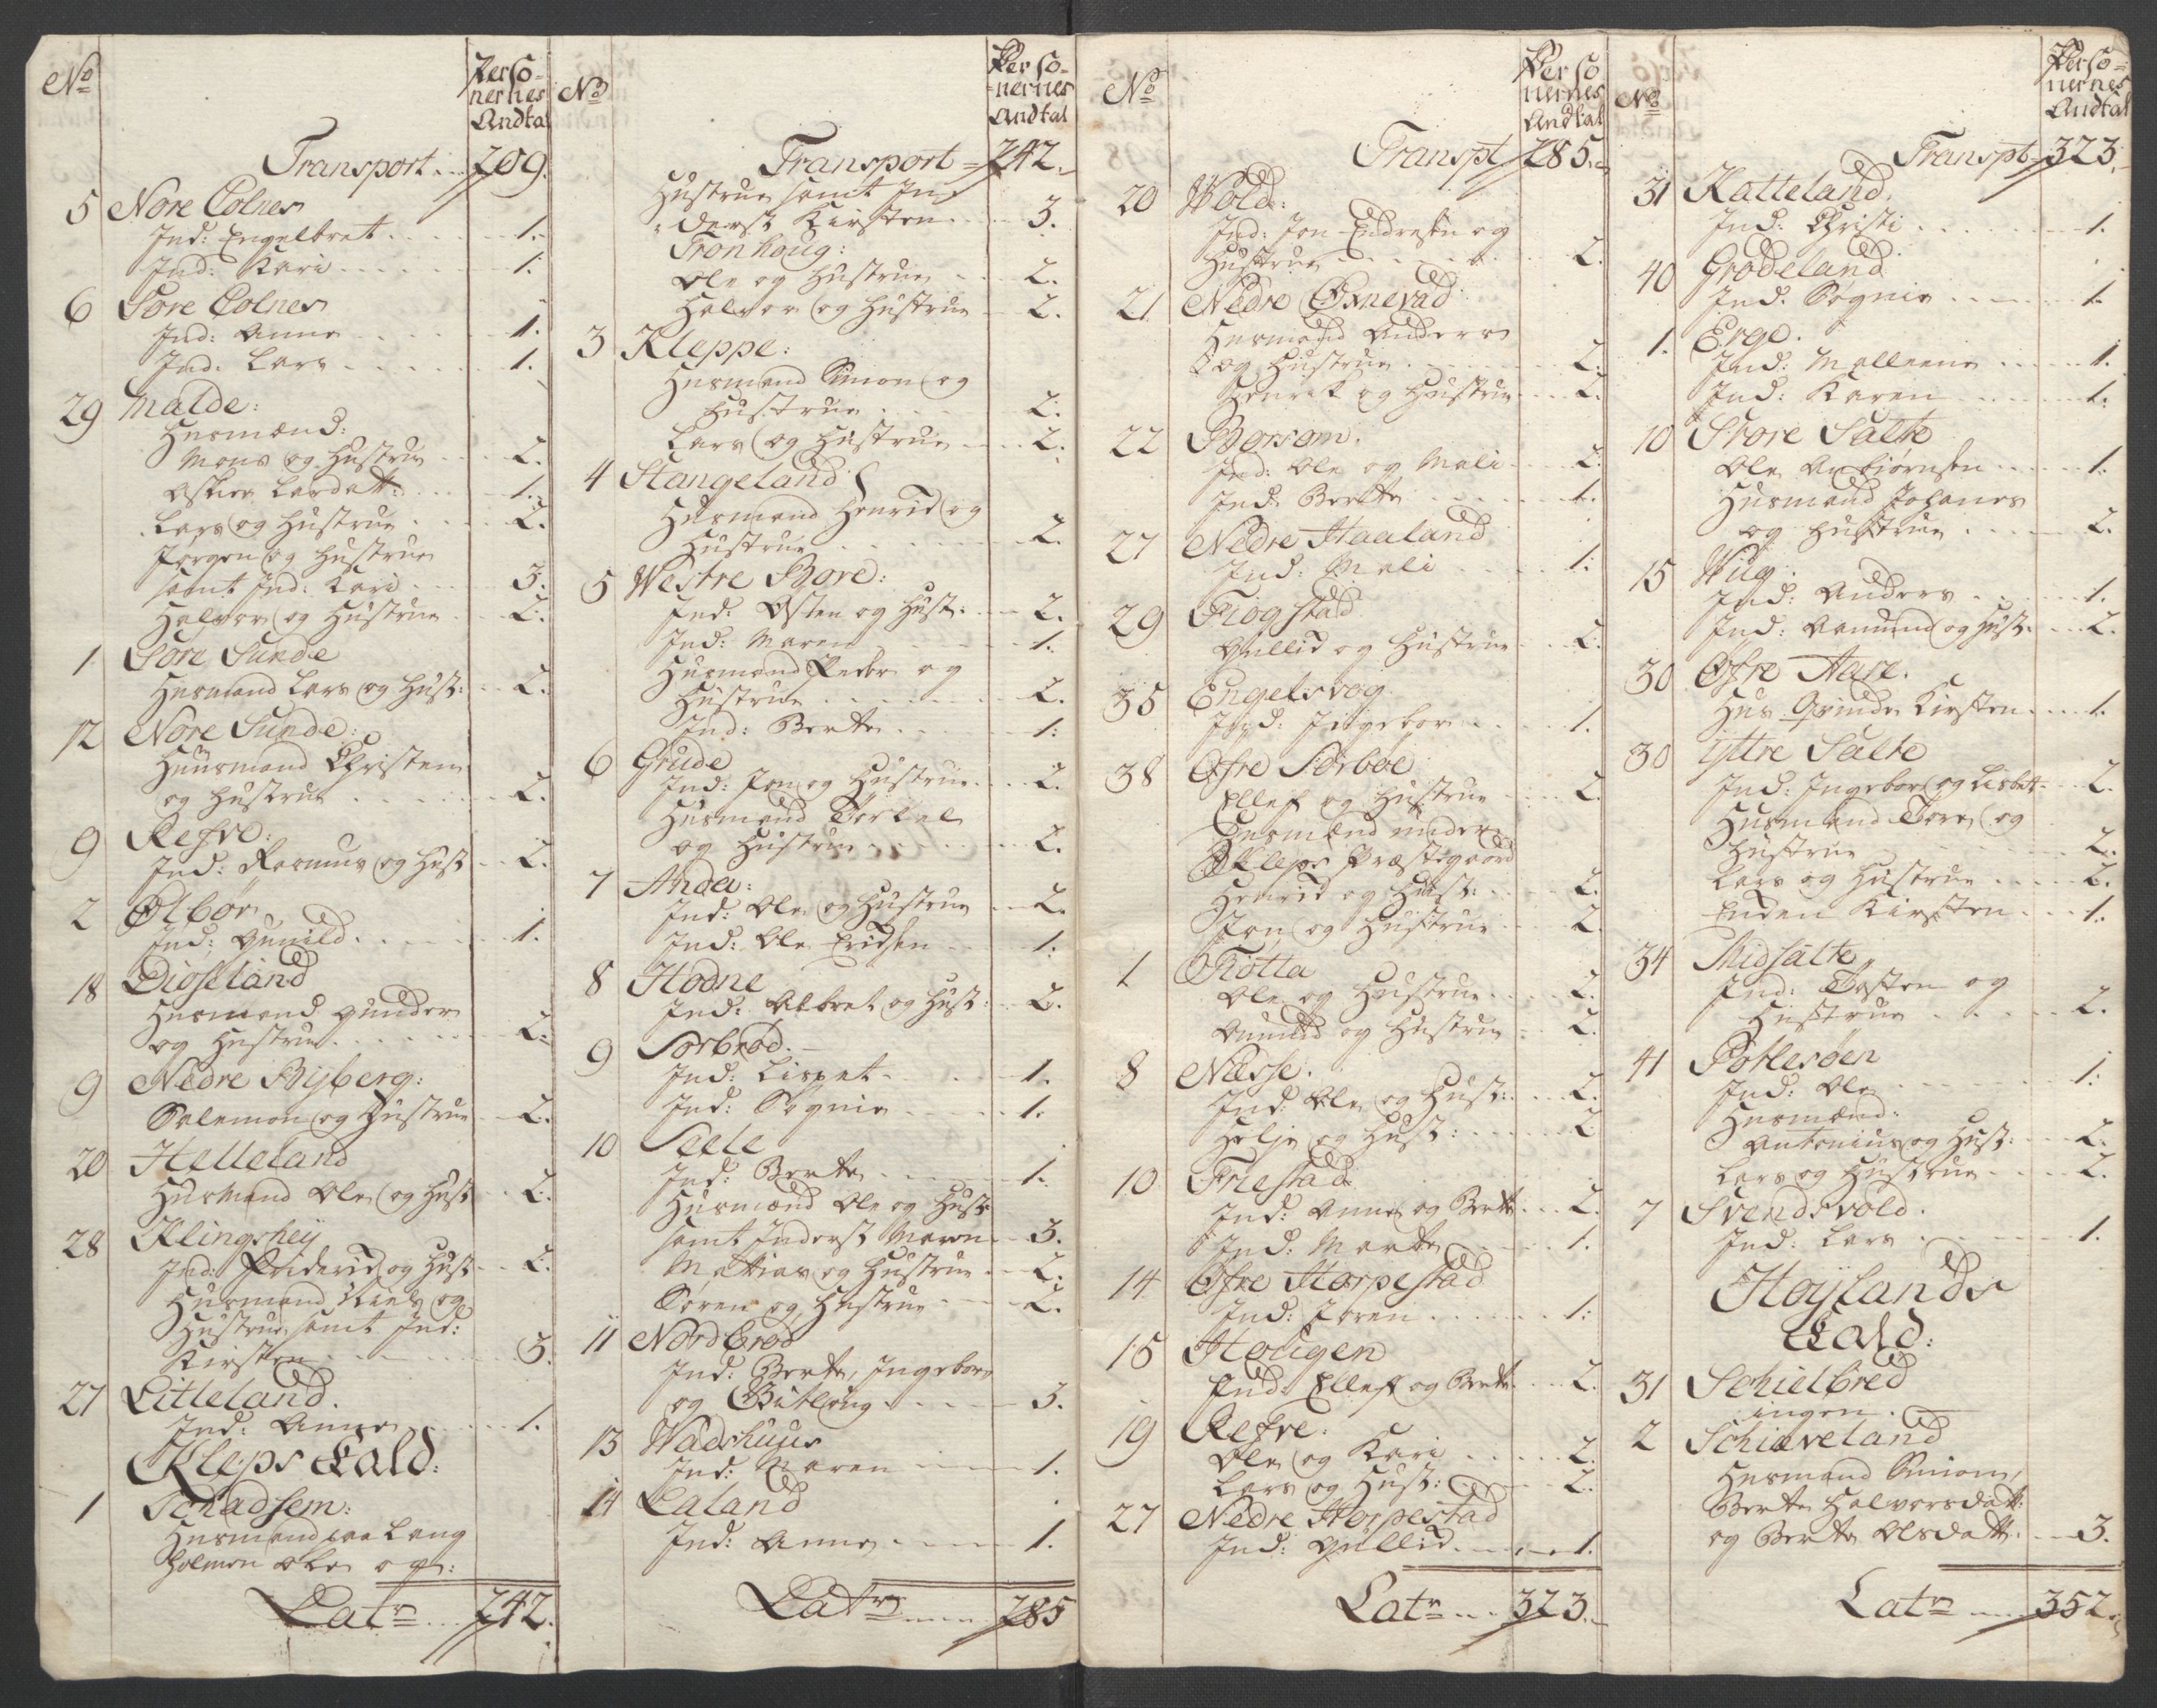 No
Perso-
nernes
Andtal
Transport . . 209.
5 Nore Colnes
Ind: Engelbret . . . . . 1.
Ind: Kari . . . . . 1.
6 Søre Colnes
Ind: Anne . . . . 1.
Ind: Lars . . . . . 1.
29 Malde:
Husmænd:
Mons og Hustrue . . . 2.
Larsdatt: . . . 1.
Lars og Hustrue . . . 2.
Jørgen og Hustrue
samt Ind: Kari . . . 3.
Halvor og Hustrue . . 2.
1 Søre Sunde
Husmand Lars og Hust: . . 2.
12 Nore Sunde:
Huusmand Christen
og Hustrue . . . . . 2.
9 Refve:
Ind: Rasmus og Hust . . 2.
2 Ølbør
Ind: Gunild . . . . . 1.
18 Diøseland
Husmand Gunder
og Hustrue . . . . . 2.
9 Nedre Byberg:
Salemon og Hustrue . . 2.
20 Helleland
Husmand Ole og Hust . . 2.
28 Klingshey
Ind: Friderich og Hust . . 2.
Husmand Niels og
Hustrue samt Ind:
Kirsten . . . . . 3.
27 Litleland.
Ind: Anne . . . . . 1.
Kleps Kald:
1 Schadsem:
Husmand paa Lang
holmen Ole og:
Latr . . 242.
No
Perso-
nernes
Andtal
Transport - 242.
Hustrue samt Ind
derst Kirsten . . . 3.
Tronhoug:
Ole og Hustrue . . . 2.
Halvor og Hustrue . . 2.
3 Kleppe:
Husmand Simon og
Hustrue . . . . 2.
Lars og Hustrue . . . 2.
4 Stangeland
Husmand Henrich og
Hustrue . . . . . 2.
5 Westre Bore:
Ind: Østen og Hust: . . 2.
Ind: Maren . . . . 1.
Husmand Peder og
Hustrue . . . . . 2.
Ind: Berte . . . . . 1.
6 Grude
Ind: Jon og Hustrue . . . 2.
Husmand Torkel
og Hustrue . . . . 2.
7 Anda:
Ind: Ole og Hustrue . . 2.
Ind: Ole Erichsen . . . 1.
8 Hodne
Ind: Albret og Hust: . . 2.
9 Sørbrød.
Ind: Lispet . . . . 1.
Ind: Søgnie . . . . 1.
10 Seele
Ind: Berte . . . . . 1.
Husmænd Ole og Hust
samt Inderst Maren . . 3.
Mattias og Hustrue . . 2.
Søren og Hustrue . . . 2.
11 Nordbrød
Ind: Berte, Ingebor
og Gitloug . . . . . 3.
13 Wadshuus
Ind: Maren . . . . 1.
14 Laland
Ind: Anne . . . . . 1.
Latr . . . 285
No
Perso
nernes
Andtal
Transpt 285.
20 Wold:
Ind: Jon Endresen og
Hustrue . . . . . 2.
21 Nedre Øxnevad
Husmænd Anders
og Hustrue . . . . . 2.
Henrik og Hustrue . . 2.
22 Borsom.
Ind: Ole og Mali . . . 2.
Ind: Berthe . . . . . 1.
27 Nedre Haaland
Ind: Mali . . . . 1.
29 Fiogstad
Gullich og Hustrue . . 2.
35 Engelsvog
Ind: Ingebor . . . 1.
38 Øfre Sørboe
Ellef og Hustrue . . . 2.
Husmænd under
Kleps Præstegaard
Henrich og Hust: . . . 2.
Jon og Hustrue . . . 2.
1 Røtta
Ole og Hustrue . . . 2.
Amund og Hustrue . . 2.
8 Næsse.
Ind: Ole og Hust: . . . 2.
Helje og Hust: . . . . 2
10 Friestad
Ind: Anne og Berte . . . 2.
Ind: Marte . . . . 1.
14 Øfre Horpestad
Ind: Joren . . . . . 1.
15 Hougen
Ind: Ellef og Berte . . . 2.
19 Refve.
Ole og Kari . . . . . 2.
Lars og Hust: . . . 2.
27 Nedre Horpestad
Ind: Gullich . . . . 1.
Latr . . 323.
No
Perso-
nernes
Andtal
Transpt 323.
31 Katteland.
Ind: Christi . . . . . 1.
40 Grødeland
Ind: Søgnie . . . . . 1.
1. Erge.
Ind: Malleene . . . . 1.
Ind: Karen . . . . . 1.
10 Store Salte
Ole Anbiørnsen . . . . 1.
Husmand Johanes
og Hustrue . . . . 2.
15 Wiig.
Ind: Anders . . . . 1.
Ind: Aamund og Hust. . . 2.
30 Øfre Aare.
Hus Qvinde Kirsten . . . 1.
30 Yttre Salte
Ind: Ingebor og Lisbet . . 2.
Husmænd Tore og
Hustrue . . . . . 2.
Lars og Hustrue . . . . 2.
Enden Kirsten . . . 1.
34 Midsalte
Ind: Tosten og
Hustrue . . . . . 2.
41 Potlesøen
Ind: Ole . . . . . 1.
Husmænd:
Antonius og Hust: . . 2.
Lars og Hustrue . . . 2.
7 Svendsvold.
Ind: Lars . . . . . 1.
Høylands
Kald:
31 Schielbred
ingen.
2 Schiæveland
Husmand Simon,
Berte Halvorsdatt:
og Berte Olsdatt: . . 3.
Latr . . . 352.